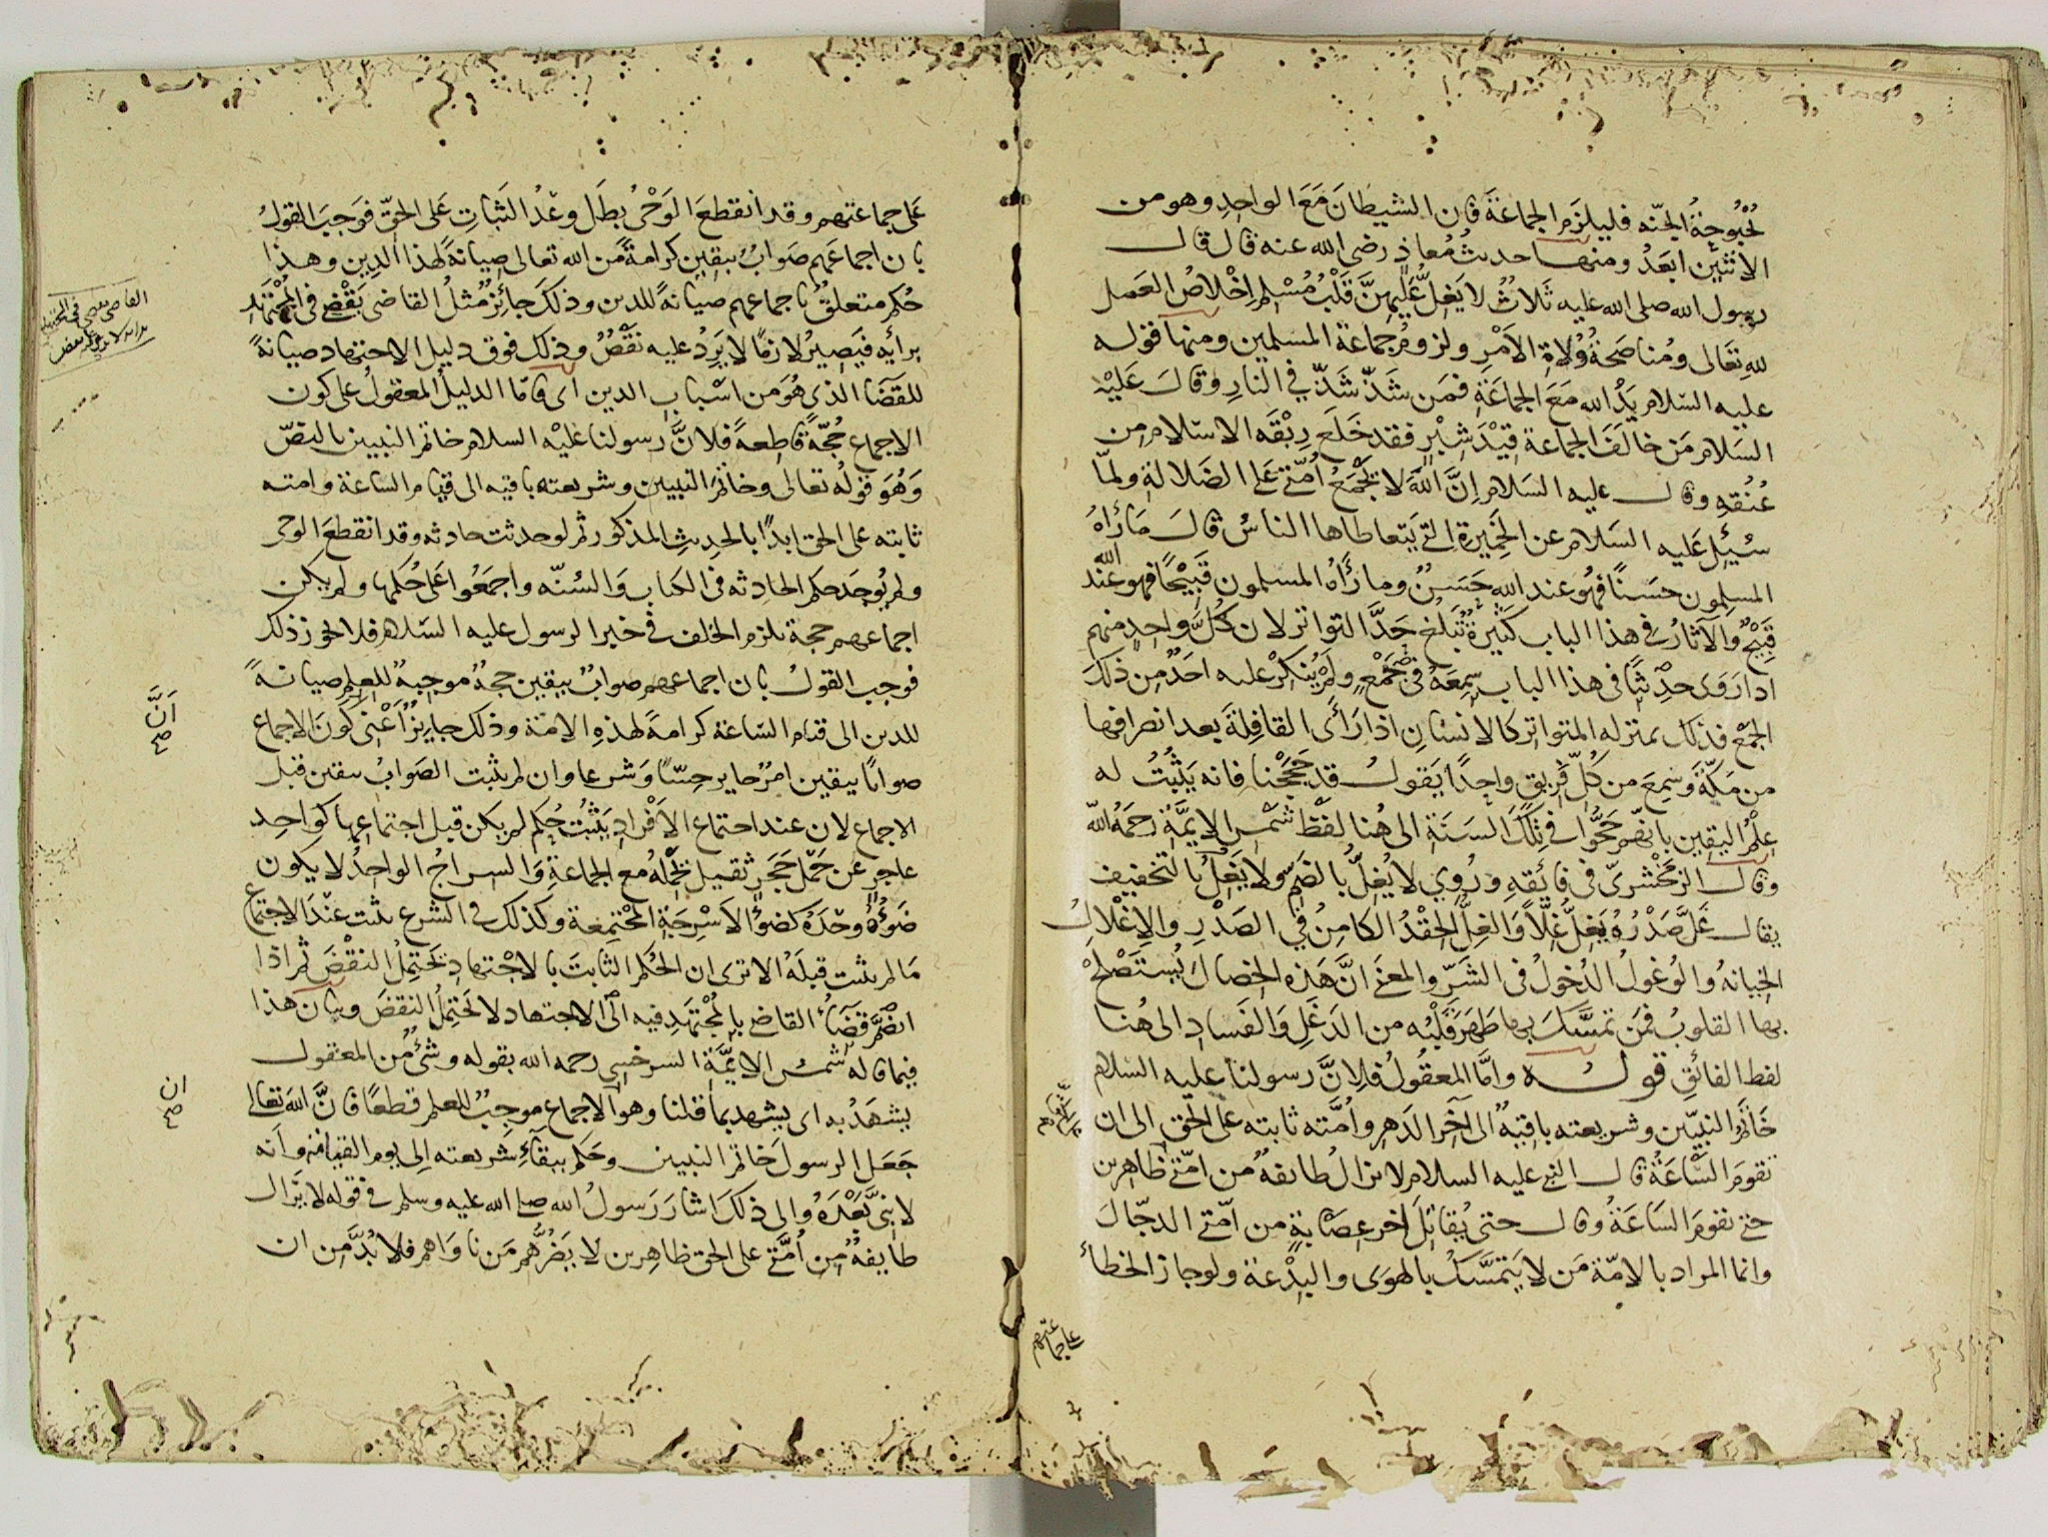 بُحْبُوحَةُ الجنّه فليلزَمِ الجماعَةَ فان الشيطانَ مَعَ الواحِدِ وهو من
الاثنَيْن ابعَدُ ومنها حديثُ مُعاذٍ رضى الله عنه قال قال
رسول الله صلى الله عليه ثَلاثٌ لا يَغِلُّ عَلَيهِنَّ قَلْبُ مُسْلِمٍ اِخْلاصُ العَملِ
للهِ تعَالى ومُناصَحةُ وُلاةِ الاَمْرِ ولزومُ جماعة المسلمين ومنها قوله
عليه السّلام يَدُ الله مَعَ الجماعَةِ فمَن شَذَّ شَذَّ في النارِ وقالَ عَلَيْهِ
السَلام مَن خالَفَ الجماعة قِيْدَ شِبْرٍ فقد خَلَع رِبْقَه الاسْلام من
عُنُقِهِ وقال عليه السَلام اِنَّ اللهَ لا يَجْمَعُ اُمّتى عَلى الضَلالةِ ولمّا
سُئِلَ عَليه السَلام عن الخَمِيرَة التى يَتعاطاها الناسُ قالَ مَا رَاٰهُ
المسلِمون حسَنًا فهُو عند الله حَسَنٌ وما رَاٰهُ المسلمون قَبِيْحًا فهو عند الله
قَبِيْحٌ والآثارُ في هذا الباب كَثِيرَةٌ تَبلغُ حَدَّ التواتر لان كُلَّ واحِدٍ منهم
اذا رَوَى حدِيْثًا في هذا الباب سَمِعَهُ في جَمْعٍ ولَمْ يُنكِرْ عليه احَدٌ مِن ذلكَ
الجمْع فذلك بمنزله المتواتر كالانسَانِ اذا رَأى القافِلةَ بعد انصرافها
من مَكّةَ وَسَمِعَ من كُلِّ فَرِيقٍ واحِدًا يَقولُ قد حَجَجْنا فانه يَثْبُتُ له
عِلْمُ اليَقِين بانّهم حَجّوُا في تِلكَ السَنَةِ الى هُنا لفَظُ شَمْس الايمَّة رحمهُ الله
وقال الزمَخْشرىّ في فائقِهِ ورُوِي لا يُغِلُّ بالضَّم ولا يَغِلُ بالتخفيف
يقال غَلَّ صَدْرُه يَغِلُّ غِلًّا وَالغِلُّ الحِقْدُ الكامِنُ فِي الصَدْرِ والاِغْلالُ
الخِيانهُ والوُغولُ الدُخولُ في الشَرّ والمعنَى انَّ هَذه الخصالَ يُستَصْلَحُ
بها القلوبُ فمَن تمسَّكَ بها طهَرَ قَلْبُه من الدَغَلِ وَالفَسادِ الى هُنا
لفظ الفائقِ قوله وامَّا المعقُولُ فلِانَّ رسولنا عليه السّلام
خَاتَمُ النبيّين وشريعته باقِيهٌ الى آخَر الدَهرِ واُمَّته ثابته على الحَق الى ان
تقومَ السَّاعَةُ قال النبى عليه السلام لا تزالُ طائفهٌ من امّتى ظاهرين
حتى تقومَ السَاعَةُ وقال حتى يُقاتِلَ آخر عِصَابةٍ من امّتى الدجّالَ
وانما المراد بالامّة مَن لا يَتمَسَّكُ بالهوَى والبِدْعة ولو جاز الخطأُ
على جماعتهم
عَلى جماعتهم وقد انقطعَ الوَحْىُ بطَل وعْدُ الثَباتِ عَلى الحقّ فوَجبَ القولُ
بان اجماعَهم صَوابٌ بيقينٍ كرامةً مّن الله تعالى صِيانةً لهذا الدِينِ وهذا
حُكم متعلقٌ باجماعهم صيانةً للدين وذلكَ جائِز مّثلُ القاضى يقْضِى في المُجتَهَدِ
برأيه فيَصِيرُ لازمًا لا يَرِدُ عليه نقْضٌ وذلك فوق دليل الاجتهاد صيانةً
للقَضَا الذى هُوَ من اسْباب الدين اى فامّا الدليلُ المعقولُ على كون
الاجماع حُجّةً قاطعةً فلانَّ رسولنا عليْه السلام خاتم النبيين بالنصّ
وَهُوَ قولُه تعالى وخاتمَ النبيين وشريعته باقيه الى قيام الساعة وامته
ثابته على الحق ابدًا بالحديثِ المذكور ثم لو حدثت حادثه وقد انقطعَ الوحى
ولم يُوجَد حكم الحادثه في الكتاب وَالسُنّه واجمَعُوا عَلى حُكمها ولم يكن
اجماعهم حجة يلزم الخلف في خبر الرسول عليه السّلام فلا يجوز ذلك
فوجب القولُ بان اجماعهم صوابٌ بيقين حجةٌ موجِبةٌ للعِلم صيانةً
للدين الى قيام السّاعة كرامةً لهذِه الامّة وذلك جايزٌ اَعْنِي كونَ الاجماع
صوابًا بيقين امرٌ جايز حِسًّا وَشرعا وان لم يثبت الصَوابُ بيقين قبل
الاجماع لان عند اجتماع الاَفْرادِ يَثبُتُ حُكم لم يكن قبل اجتماعِها كواحِد
عاجِزٍ عن حَمْل حَجَرٍ ثقيل يَحْمِلهُ مع الجماعةِ وَالسراجُ الواحدُ لا يكون
ضَوْءُهُ وحْدَهُ كضوءِ الاَسْرِجَةِ المجْتمِعة وكذلك في الشرع يثبت عندَ الاجتماع
مَا لم يثبت قبلَهُ الا ترى ان الحُكم الثابتَ بالاجْتهادِ يحتَمِلُ النقْضَ ثم اذا
انضَمَّ قضَاءُ القاضى بالمُجْتَهَدِ فيه اى الاجتهاد لا يَحتِملُ النقضَ وبيان هذا
فيما قاله شمسُ الايمَّة السرخسى رحمه الله بقوله وشئٌ من المعقول
يشهَدُ به اى يشهد بما قلنا وهو الاجماع موجِبٌ للعلم قطعًا فانَّ اللهَ تعالى
جَعَل الرسولَ خاتمَ النبيين وحكم ببقآءِ شَريعته الى يوم القيامة وانه
لا نبىَّ بَعْدَهُ والى ذلكَ اشارَ رَسولُ الله صلى الله عليه وسلم في قوله لا يَزال
طايفةٌ مّن اُمّتى على الحق ظاهِرين لا يَضُرُّهم مَن ناوَاهم فلا بُدَّ مِن ان
اَنَّ
صح
ان
صح